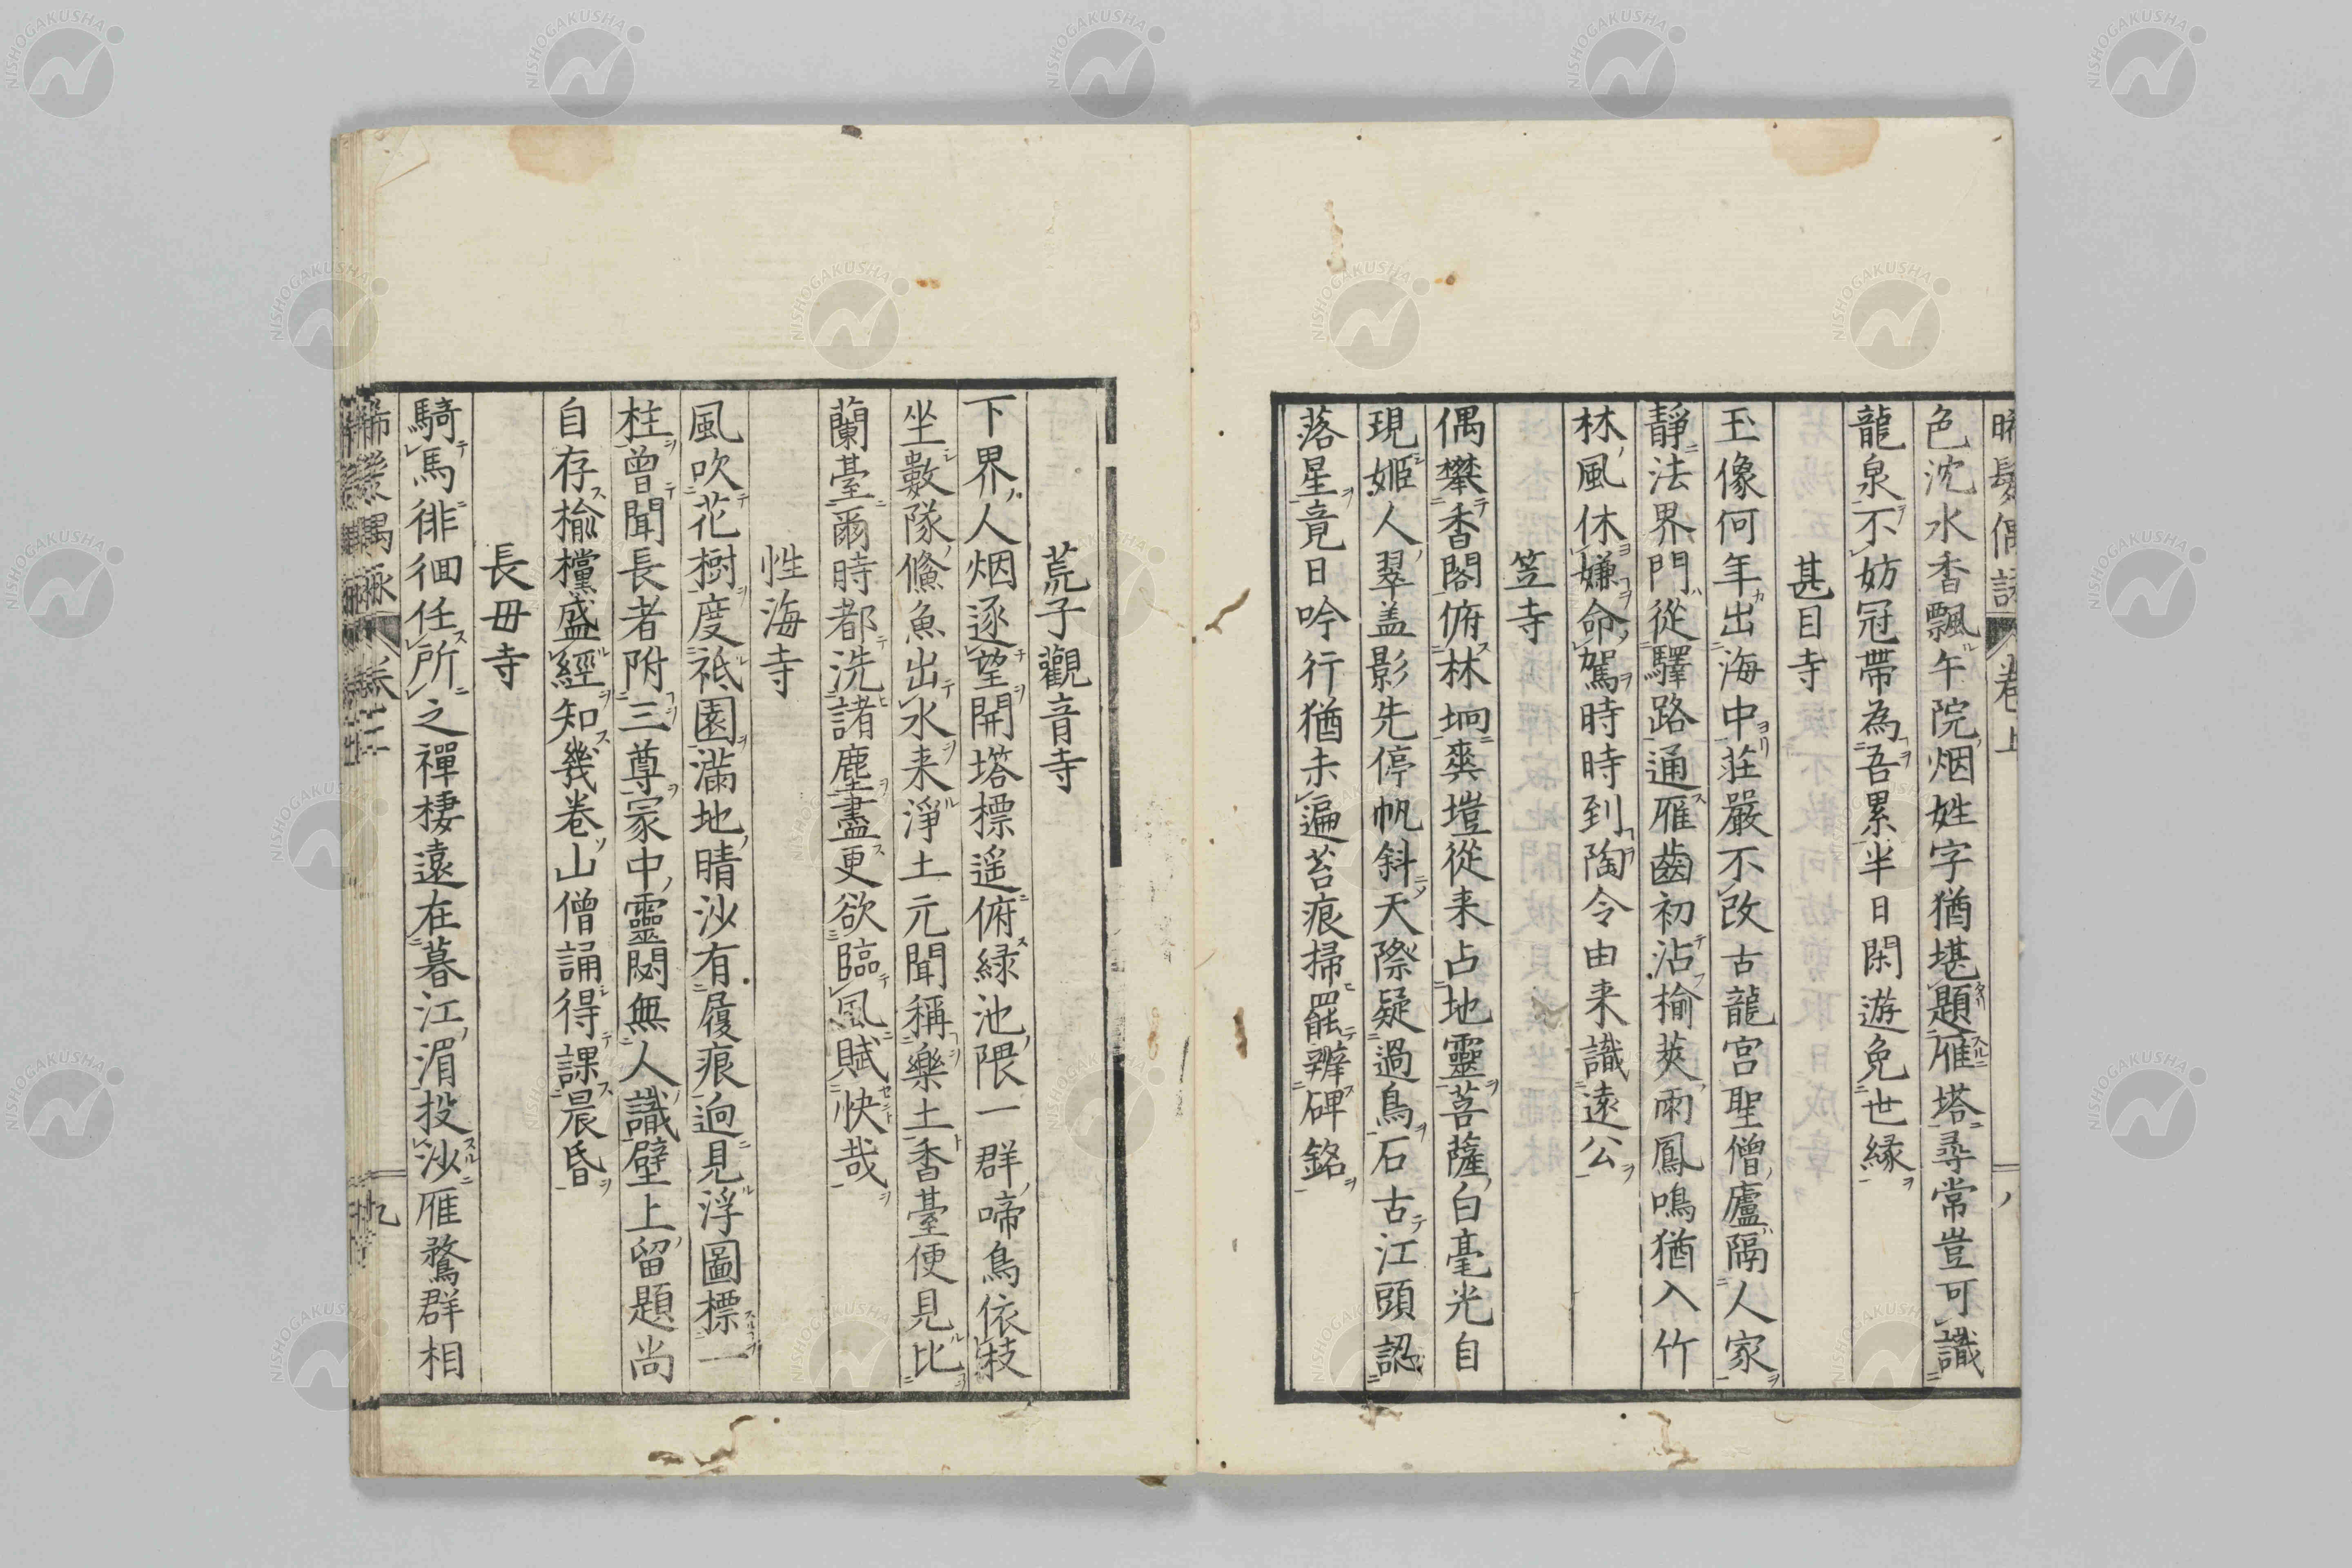 色沈水香飄午院烟姓字猶堪題雁塔尋常豈可識
龍泉不妨冠帶為吾累半日閑遊免世縁
甚目寺
玉像何年出海中莊嚴不改古龍宮聖僧廬隔人家
靜法界門從驛路通雁齒初沾榆莢雨鳳鳴猶入竹
林風休嫌命駕時時到陶令由来識遠公
笠寺
偶攀香閣俯林坰爽塏從来占地靈菩薩白毫光自
現姬人翠盖影先停帆斜天際疑過鳥石古江頭認
落星竟日吟行猶未遍苔痕掃罷辨碑銘
荒子觀音寺
下界人烟逐望開塔標遥俯緑池隈一群啼鳥依枝
坐數隊鯈魚出水来淨土元聞稱樂土香臺便見比
蘭臺爾時都洗諸塵盡更欲臨風賦快哉
性海寺
風吹花樹度祗園滿地晴沙有履痕逈見浮圖標一
柱曾聞長者附三尊冢中靈閟無人識壁上留題尚
自存榆欓盛經知幾卷山僧誦得課晨昏
長毋寺
騎馬徘徊任所之禪棲遠在暮江湄投沙雁鶩群相